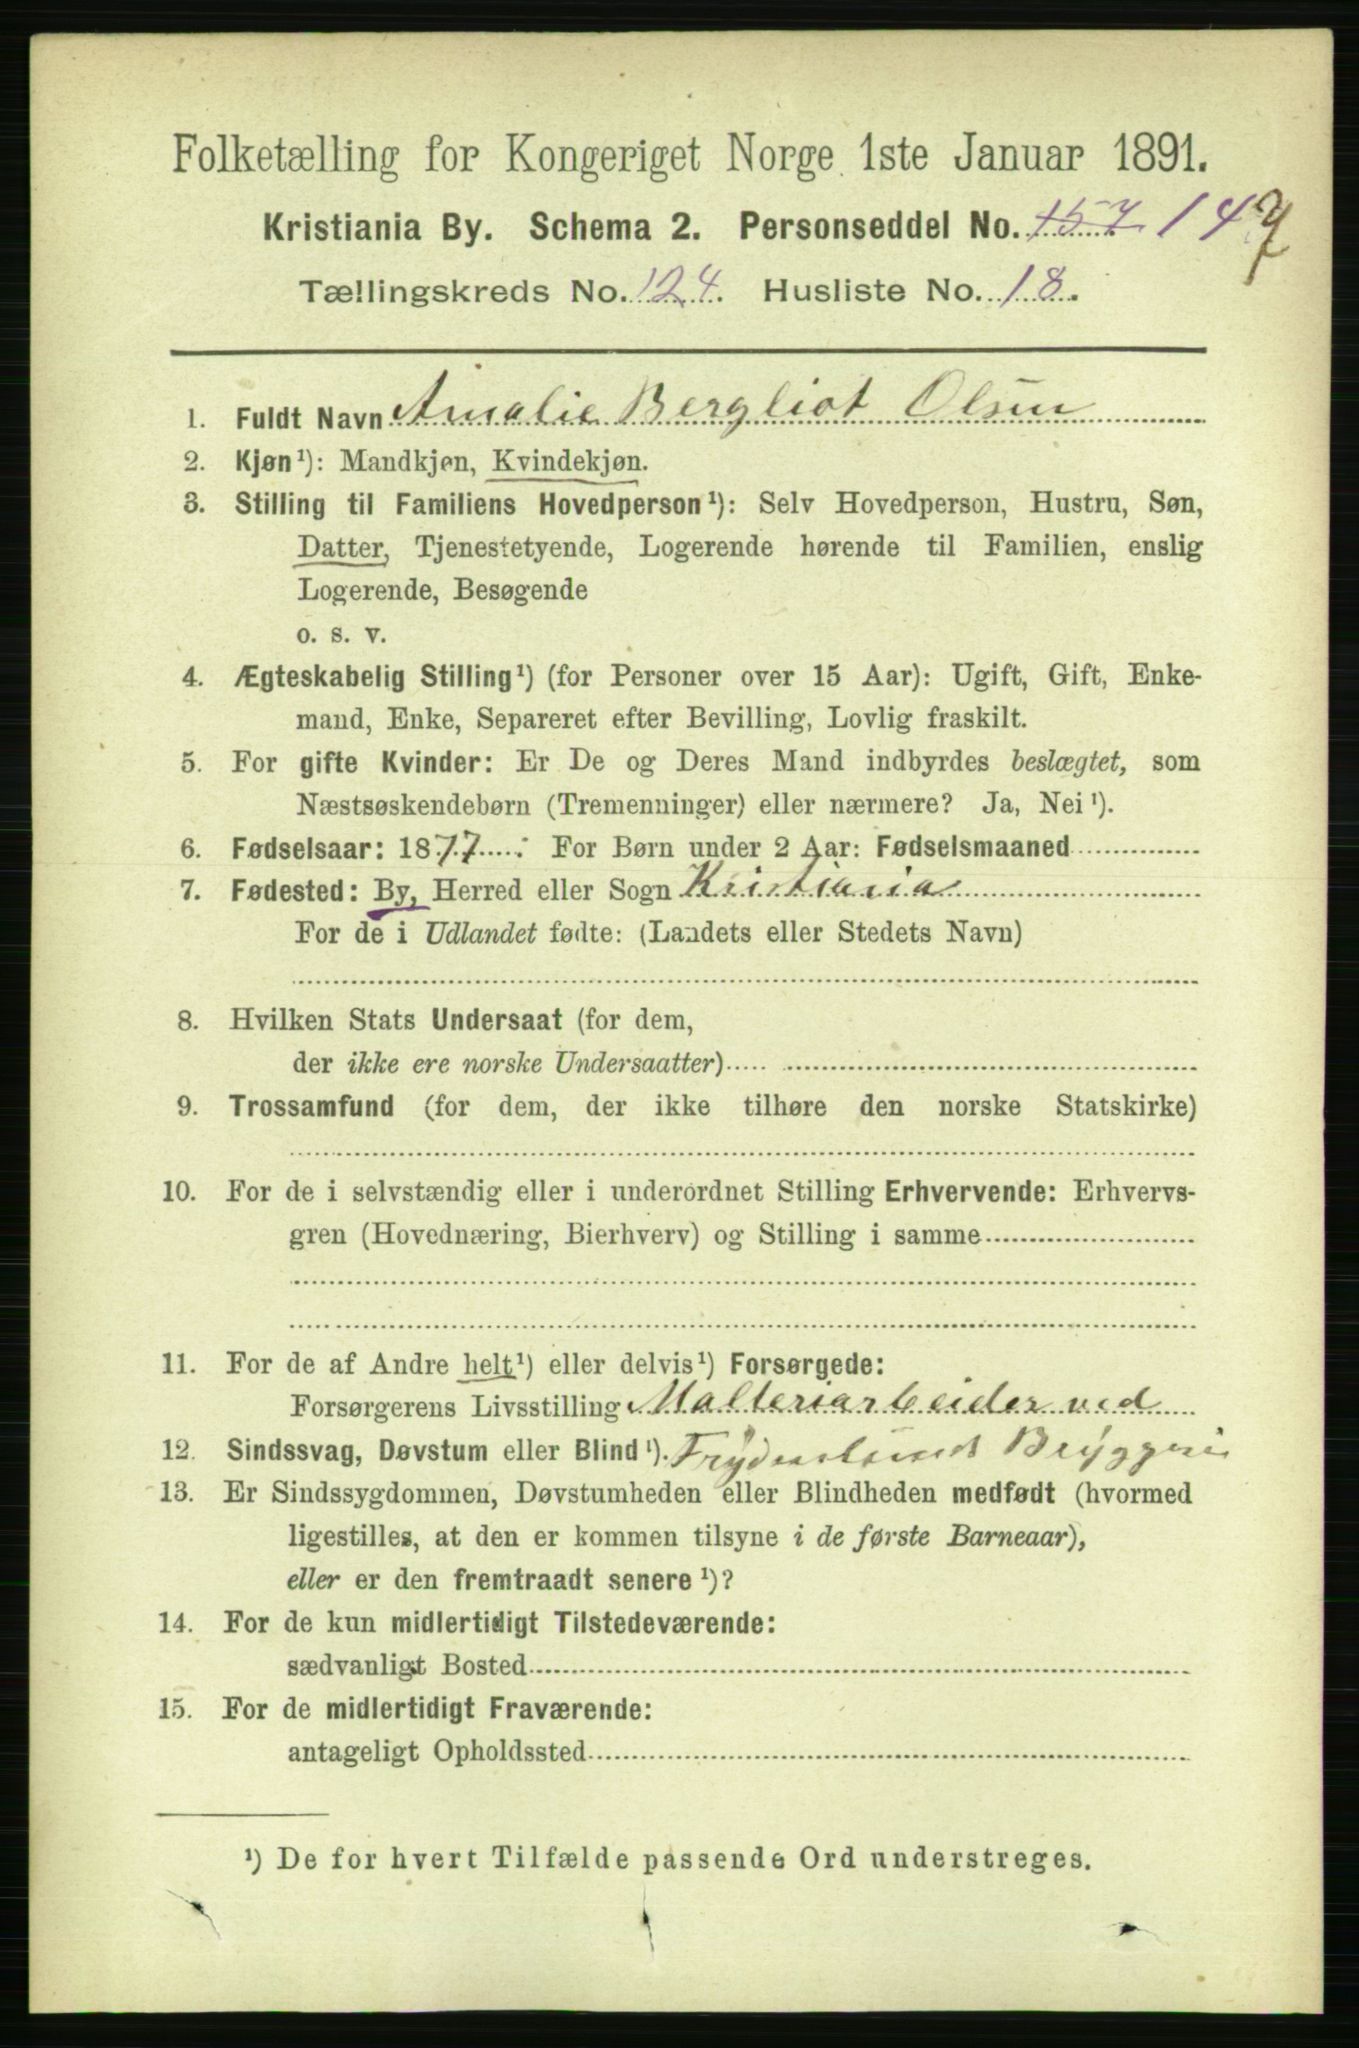 Folketælling for Kongeriget Norge 1ste Januar 1891.
Kristiania By. Schema 2. Personseddel No. 157 147
Tællingskreds No. 124. Husliste No. 18.
1. Fuldt Navn Amalie Bergliot Olsen
2. Kjøn¹): Mandkjøn, Kvindekjøn.
3. Stilling til Familiens Hovedperson¹): Selv Hovedperson, Hustru, Søn,
Datter, Tjenestetyende, Logerende hørende til Familien, enslig
Logerende, Besøgende
o. s. v.
4. Ægteskabelig Stilling¹) (for Personer over 15 Aar): Ugift, Gift, Enke-
mand, Enke, Separeret efter Bevilling, Lovlig fraskilt.
5. For gifte Kvinder: Er De og Deres Mand indbyrdes beslægtet, som
Næstsøskendebørn (Tremenninger) eller nærmere? Ja, Nei¹).
6. Fødselsaar: 1877. For Børn under 2 Aar: Fødselsmaaned
7. Fødested: By, Herred eller Sogn Kristiania
For de i Udlandet fødte: (Landets eller Stedets Navn)
8. Hvilken Stats Undersaat (for dem,
der ikke ere norske Undersaatter)
9. Trossamfund (for dem, der ikke tilhøre den norske Statskirke)
10. For de i selvstændig eller i underordnet Stilling Erhvervende: Erhvervs-
gren (Hovednæring, Bierhverv) og Stilling i samme
11. For de af Andre helt¹) eller delvis¹) Forsørgede:
Forsørgerens Livsstilling Malteriarbeider ved
12. Sindssvag, Døvstum eller Blind¹). Frydenlunds Bryggeri
13. Er Sindssygdommen, Døvstumheden eller Blindheden medfødt (hvormed
ligestilles, at den er kommen tilsyne i de første Barneaar),
eller er den fremtraadt senere¹)?
14. For de kun midlertidigt Tilstedeværende:
sædvanligt Bosted
15. For de midlertidigt Fraværende:
antageligt Opholdssted
¹) De for hvert Tilfælde passende Ord understreges.